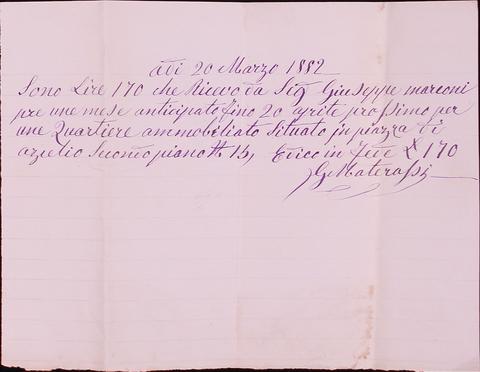 Adi 20 Marzo 1882
Sono Lire 170 che Ricevo da Sig Giuseppe marconi
pre une mese anticipato fino 20 aprile prossimo per
une Quartiere ammobiliato Situato in piazza di
azzelio Secondo piano # 15, E dico in Fede £ 170
G. Materassi